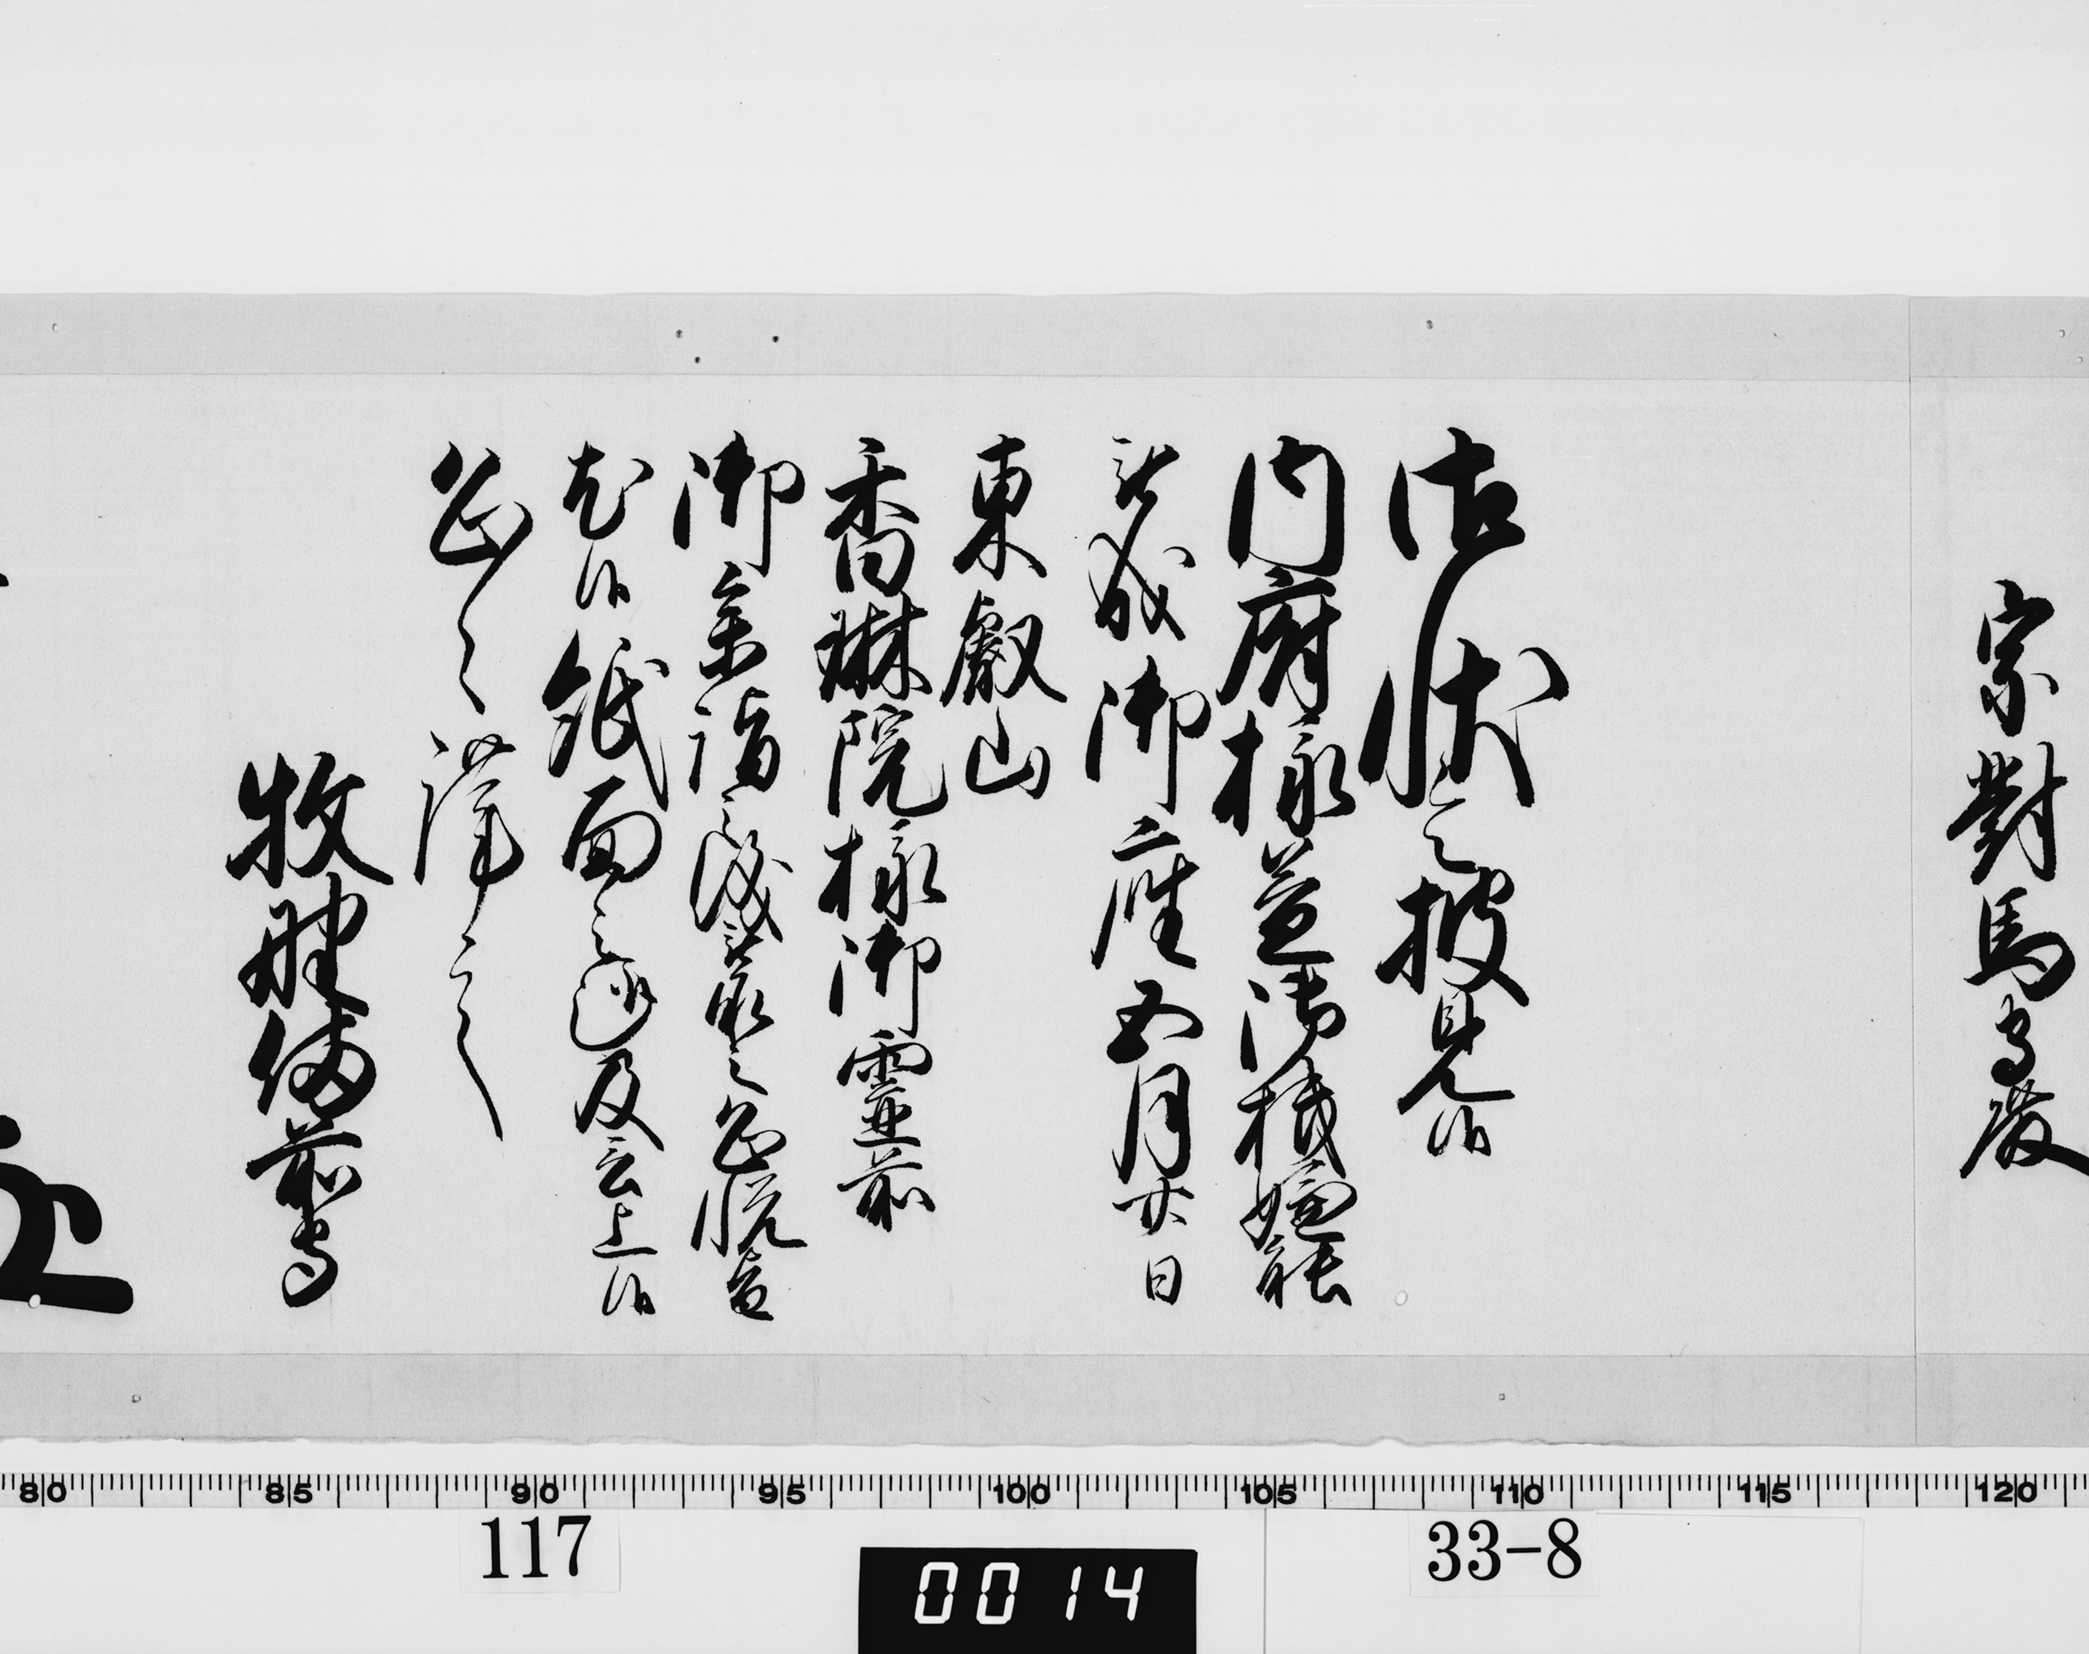 宗對馬守殿
御状令披見候
内府様益御機嫌能
被成御座五月廿日
東叡山
香琳院様御霊前
御参詣之儀被承之恐悦旨
尤候紙面之趣及言上候
恐々謹言
牧野備前守
80 85 90 95 100 105 110 115 120
117
33-8
0014